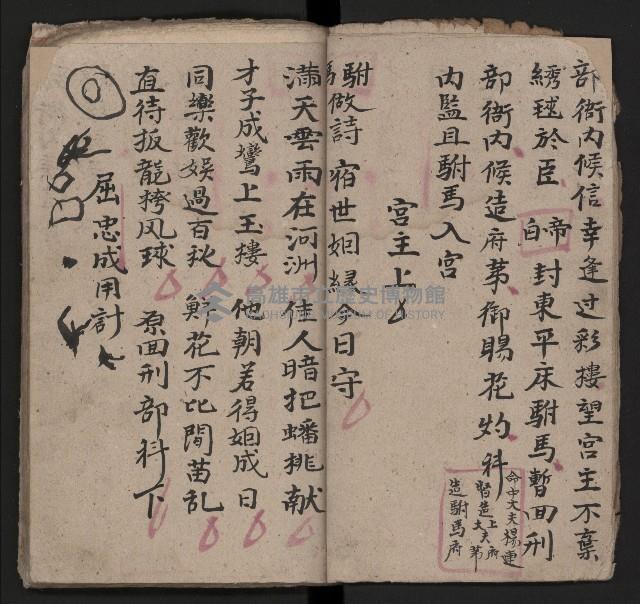 部衙內候信幸逢过彩摟望宮主不棄
綉球於臣 帝白 封東平床駙馬暫回刑
部衙內候造府苐御賜花灼科
命中大夫揚運
督造上大夫府苐
造駙馬府
內監且駙馬入宮
宮主上
駙馬做詩 宿世姻緣今日守
滿天雲雨在河洲 佳人暗把蟠挑献
才子成鸞上玉摟 他朝若得姻成日
同樂歡娛過百秋 鮮花不比閒苗乱
直待扳龍挎风球 原回刑部科下
屈忠成用計
高雄市立歷史博物館
KAOHSIUNG MUSEUM OF HISTORY